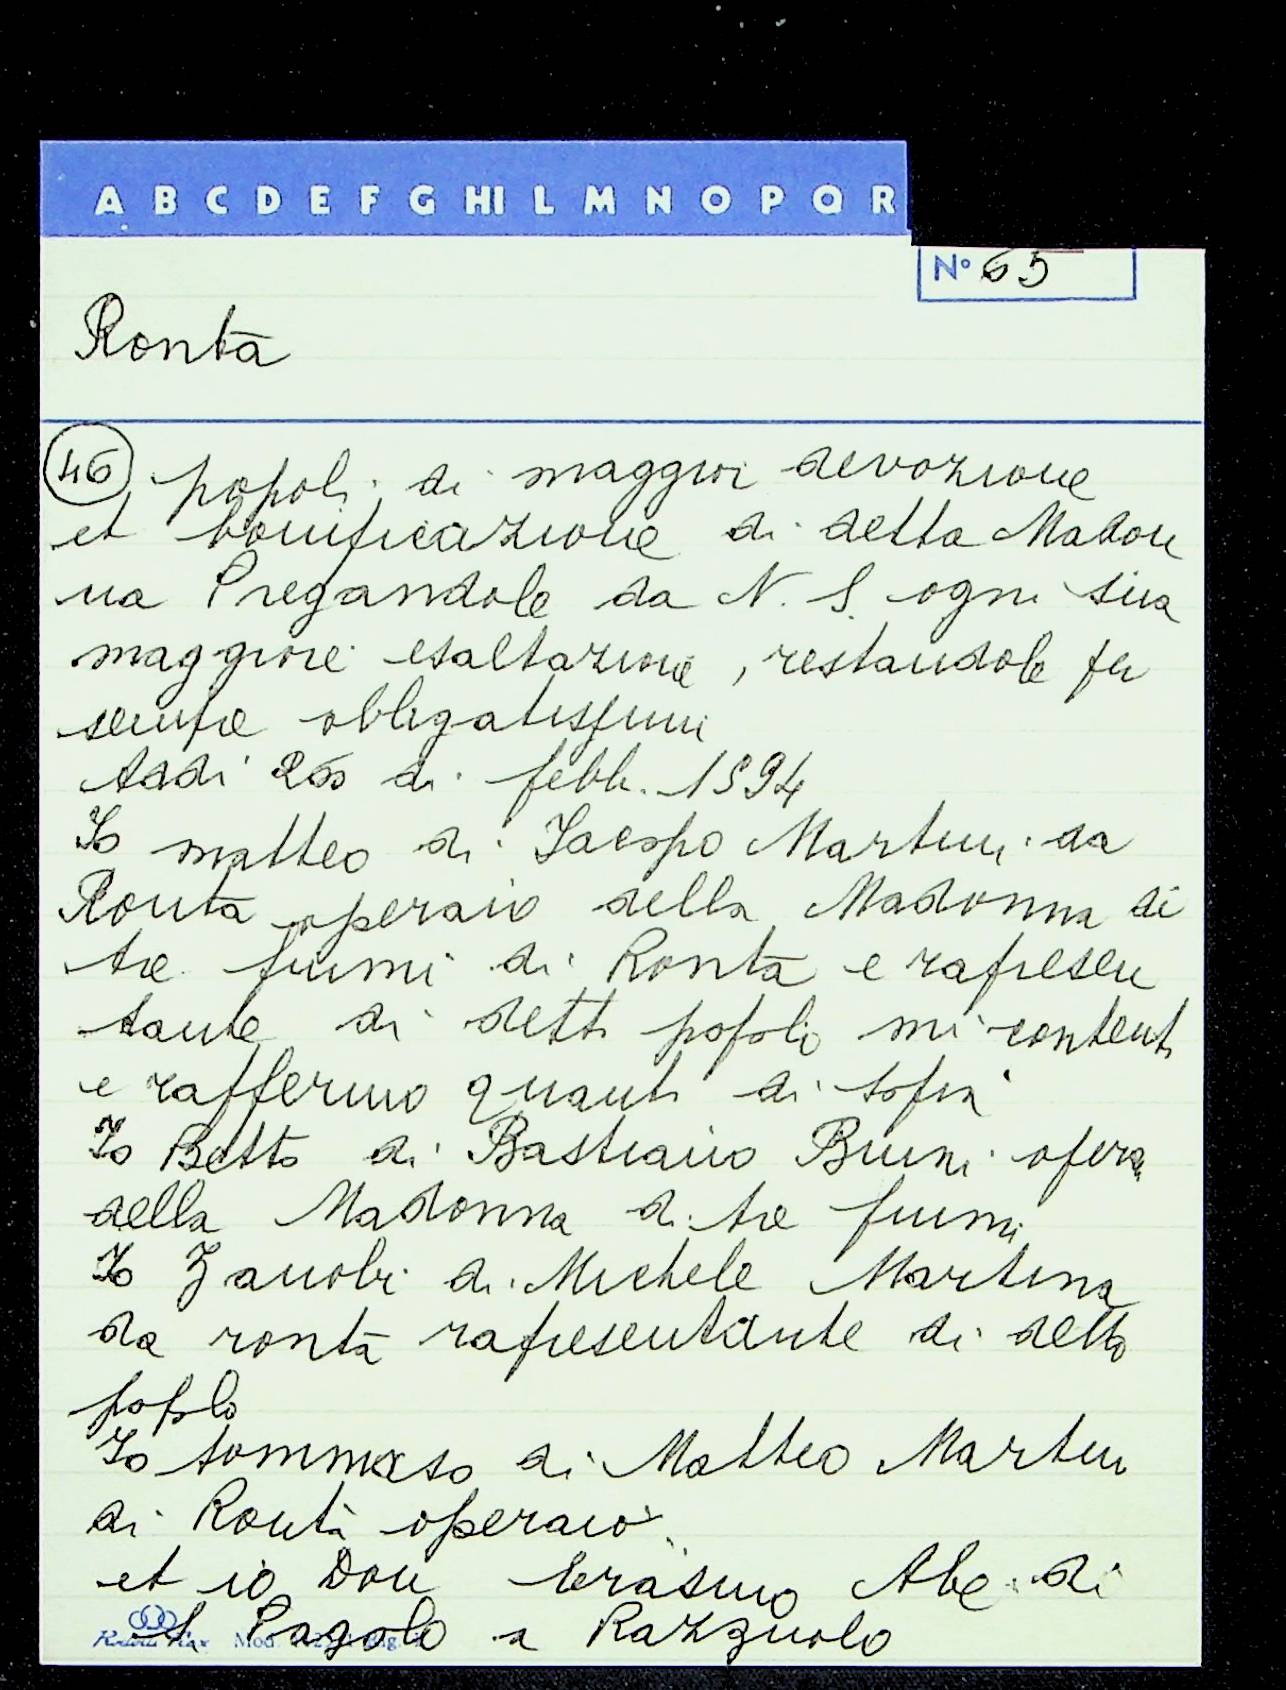 A B C D E F G HI L M N O P Q R
N° 65
Ronta
46 popoli di maggior devozione
et bonificazione di detta Madon
na Pregandole da N. S. ogni sua
maggiore esaltazione, restandole per
sempre obligatissimi
Addi 26 di febb. 1594
Io matteo di Jacopo Martini da
Ronta operaio della Madonna di
tre fiumi di Ronta e rapresen
tante di detto popolo mi contento
e raffermo quanto di sopra
Io Betto di Bastiano Bruni opera
della Madonna di tre fiumi
Io Zanobi di Michele Martini
da ronta rapresentante di detto
popolo
Io tommaso di Matteo Martini
di Ronta operaio
et io Don Erasmo Abe di
S. Pagolo a Razzuolo
Mod.